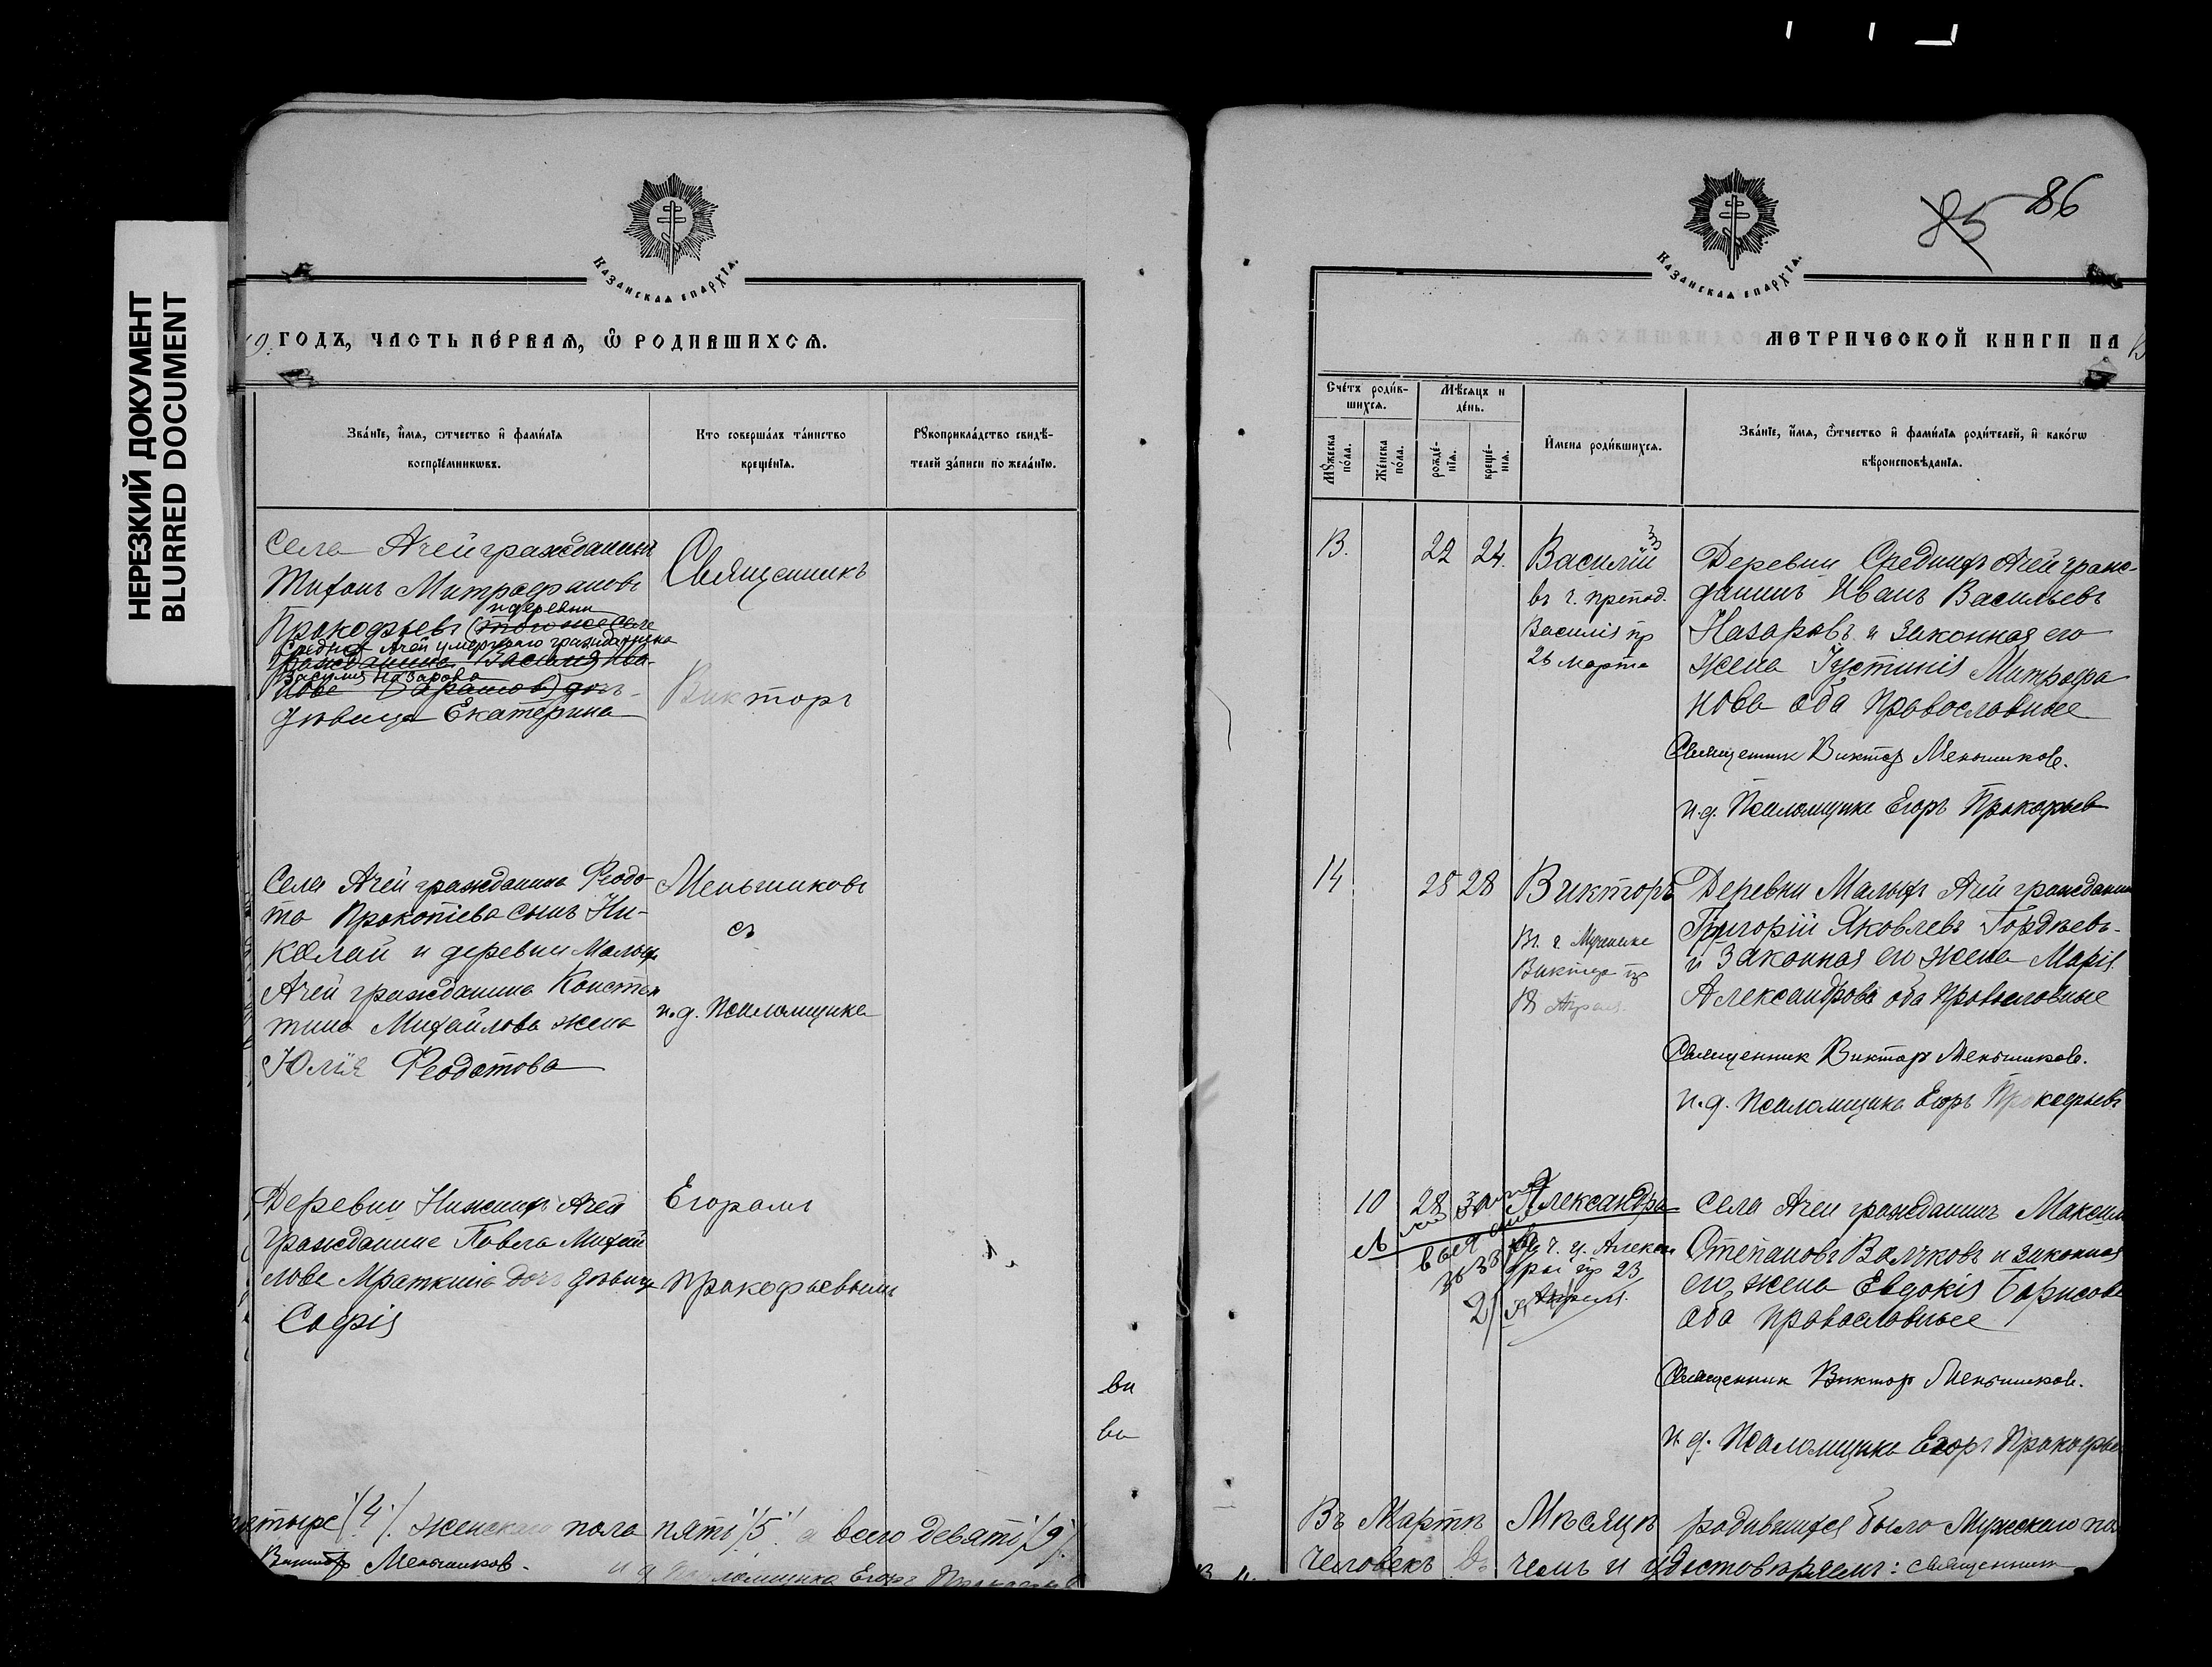 НЕРЕЗКИЙ ДОКУМЕНТ
BLURRED DOCUMENT
КАЗАНСКАЯ ЕПАРХІЯ.
19. ГОДЪ, ЧАСТЬ ПЕ́РВАЯ, Ѿ РОДИВШИХСѦ.
Зва́нїе, и҆́мѧ, ѻтчество и҆ фами́лїѧ
воспрїе́мникѡвъ.
Кто соверша́лъ та́инство
креще́нїѧ.
Рꙋкоприкла́дство свидѣ́-
телей за́писи по жела́нїю.
Села Ачей гражданинъ
Тихонъ Митрофановъ
Прокофьевъ (
и деревни
Средних Ачей умершаго гражданина
Василия Назарова
дочь
девица Екатерина
Священникъ
Викторъ
Села Ачей гражданина Феодо-
та Прокопіева сынъ Ни-
колай и деревни Малых
Ачей гражданина Констан
тина Михайлова жена
Юлія Феодотова
Меньшиковъ
съ
и.д. Псаломщика
Деревни Нижних Ачей
Гражданина Павла Михай
лова Мраткина дочь девица
Софія
Егоромъ
Прокофьевымъ
ви
ва
четыре (4). женскаго пола пять (5) а всего девять (9).
Викторъ Меньшиков.
и.д. Псаломщика Егоръ Прокофьев
85 86
КАЗАНСКАЯ ЕПАРХІЯ.
МЕТРИЧЕСКОЙ КНИГИ НА
Сче́тъ роди́в-
шихсѧ.
Мꙋ́жеска
по́ла.
Же́нска
по́ла.
Мѣ́сѧцъ и
де́нь.
рожде́-
нїѧ.
креще́-
нїѧ.
И҆мена роди́вшихсѧ.
Зва́нїе, и҆́мѧ, ѻ҆́тчество и҆ фами́лїѧ роди́телей, и҆ како́гѡ
вѣроисповѣ́данїѧ.
13. 22 24. Василій
въ ч. препод.
Василія пр
26 марта
Деревни Средних Ачей граж-
данинъ Иванъ Васильевъ
Назаровъ и законная его
жена Іустинія Митрофа
нова оба Православные
Священник Виктор Меньшиков.
и.д. Псаломщика Егоръ Прокофьев
14. 25 28 Викторъ
въ ч. Мученика
Виктора пр
18 Апреля.
Деревни Малых Ачей гражданин
Григорій Яковлевъ Гордеевъ
и законная его жена Марія
Александрова оба Православные
Священник Викторъ Меньшиков.
и.д. Псаломщика Егоръ Прокофьевъ
10 28 30 Александра
въ ч. ц. Алексан
дры пр 23
Апреля.
Села Ачей гражданинъ Максим
Степановъ Волчковъ и законная
его жена Евдокія Борисова
оба православные
Священник Виктор Меньшиков.
и.д. Псаломщика Егоръ Прокофье
Въ Марте Месяце родившихся было Мужского по
человекъ Въ чемъ и удостоверяемъ: священникъ